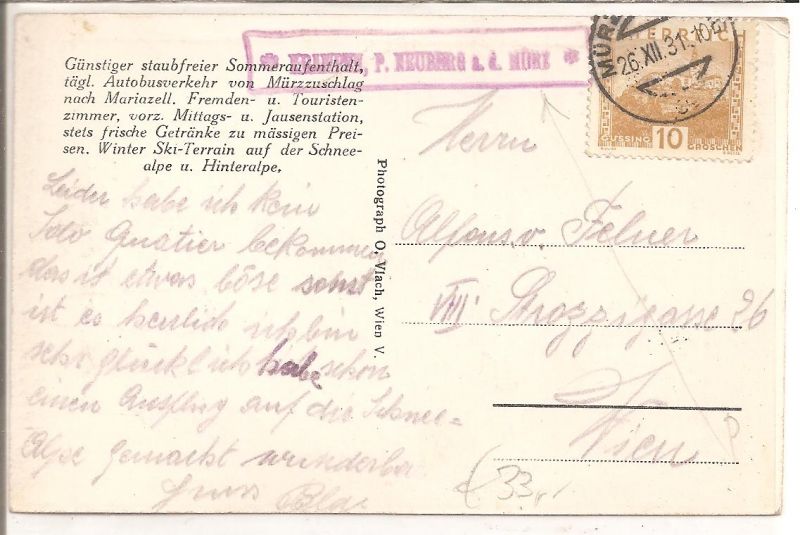 Günstiger staubfreier Sommeraufenthalt,
tägl. Autobusverkehr von Mürzzuschlag
nach Mariazell. Fremden- u. Touristen-
zimmer, vorz. Mittags- u. Jausenstation,
stets frische Getränke zu mässigen Prei-
sen. Winter Ski-Terrain auf der Schnee-
alpe u. Hinteralpe.
Leider habe ich kein
Solo Quatier bekommen
das ist etwas böse sonst
ist es herrlich ich bin
sehr glücklich habe schon
einen Ausflug auf die Schnee-
Alpe gemacht wunderbar
Photograph O. Vlach, Wien V.
P. NEUBERG a. d. MÜRZ
MÜRZ
26.XII.31.10
ÖSTERREICH
GÜSSING 10 GROSCHEN
Herrn
Alfons v. Felner
VIII Strozzigasse 26
Wien
33